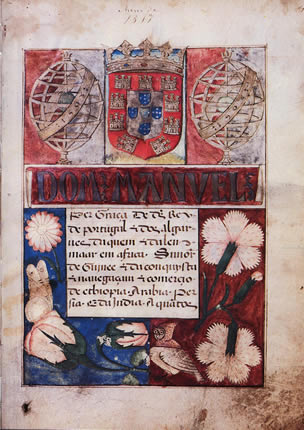 1517
DOM: MANVEL:
Per Graça De ds Rey
de portugal & dos algar
ues, daquem & dalem
maar em africa. Senor
de Guinee & da conquista
& nauegaçam & comerçio
de ethiopia. Arabia. Per
sia. & da India. A quãtos